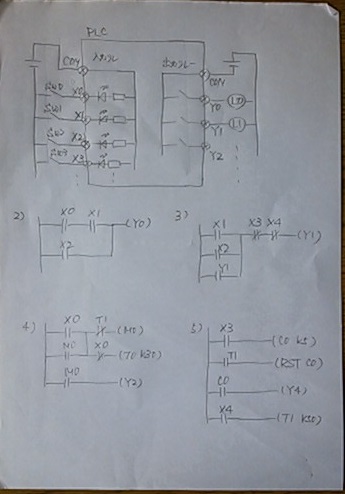 PLC
COM
入力リレー
出力リレー
COM
X0
X1
X2
X3
Y0
Y1
Y2
L0
L1
2)
X0 X1
(Y0)
X2
3)
X1 X3 X4
(Y1)
X2
Y1
4)
X0 T1
(M0)
M0 X0
(T0 K30)
M0
(Y2)
5)
X3
(C0 K5)
T1
(RST C0)
C0
(Y4)
X4
(T1 K50)